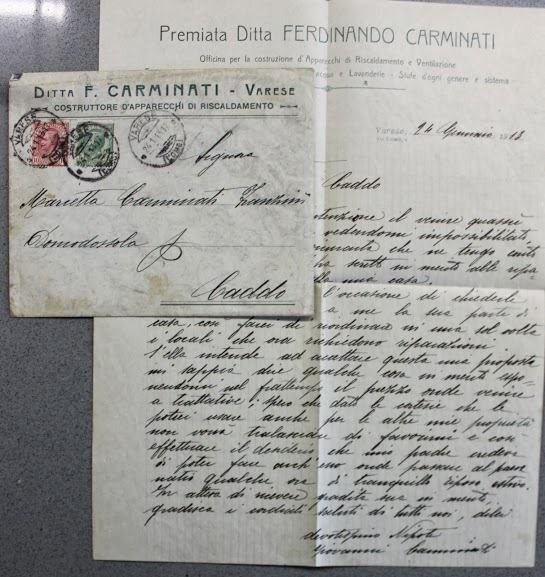 Premiata Ditta FERDINANDO CARMINATI
Officina per la costruzione d'Apparecchi di Riscaldamento e Ventilazione
acqua e Lavanderie - Stufe d'ogni genere e sistema
Varese, 24 Gennaio 1913
DITTA F. CARMINATI - VARESE
COSTRUTTORE D'APPARECCHI DI RISCALDAMENTO
VARESE
(COMO)
VARESE
(COMO)
Signora
Marietta Carminati
Domodossola
Caddo
Caddo
il venire quassù
vedendomi impossibilitato
che ne tengo conto
scritti in merito alle ripa
la mia casa.
l'occasione di chiederle
a me la sua parte di
casa, così farei di riordinare in una sol volta
i locali che ora richiedono riparazioni.
S'ella intende ad accettare questa mia proposta
mi sappia dire qualche cosa in merito
nel frattempo il prezzo onde venire
a trattative. Spero che date le cortesie che le
potei usare anche per le altre mie proposte
non vorrà tralasciare di favorirmi e così
effettuare il desiderio che mio padre
di poter fare onde passare al paese
natio qualche ora di tranquillo riposo estivo.
In attesa di ricevere gradita sua in merito,
gradisca i cordiali saluti di tutti noi, dello
devotissimo Nipote
Giovanni Carminati